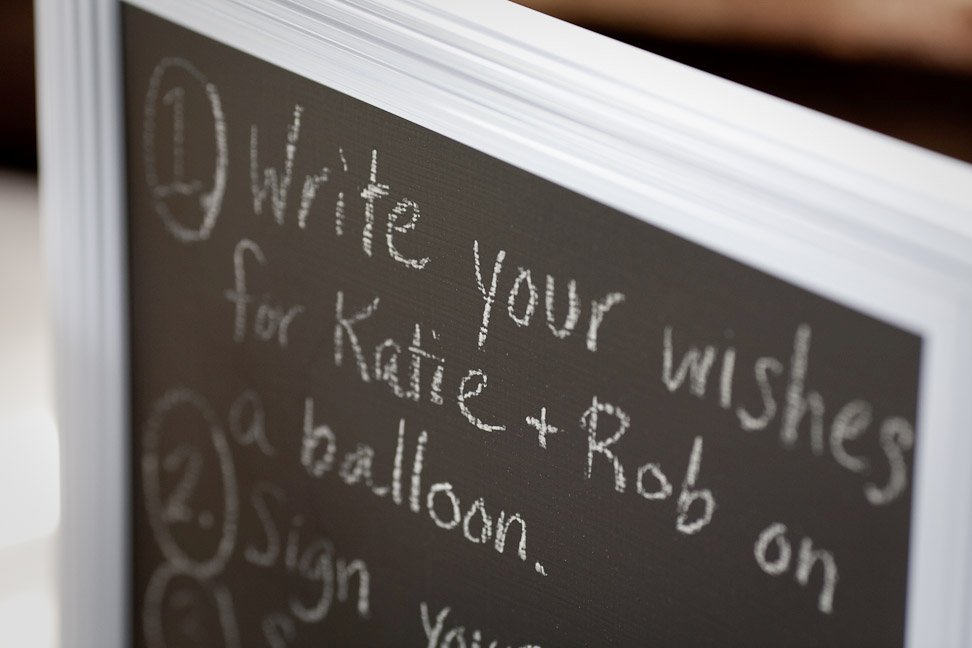 1 Write your wishes
for Katie + Rob on
a balloon.
2. Sign your